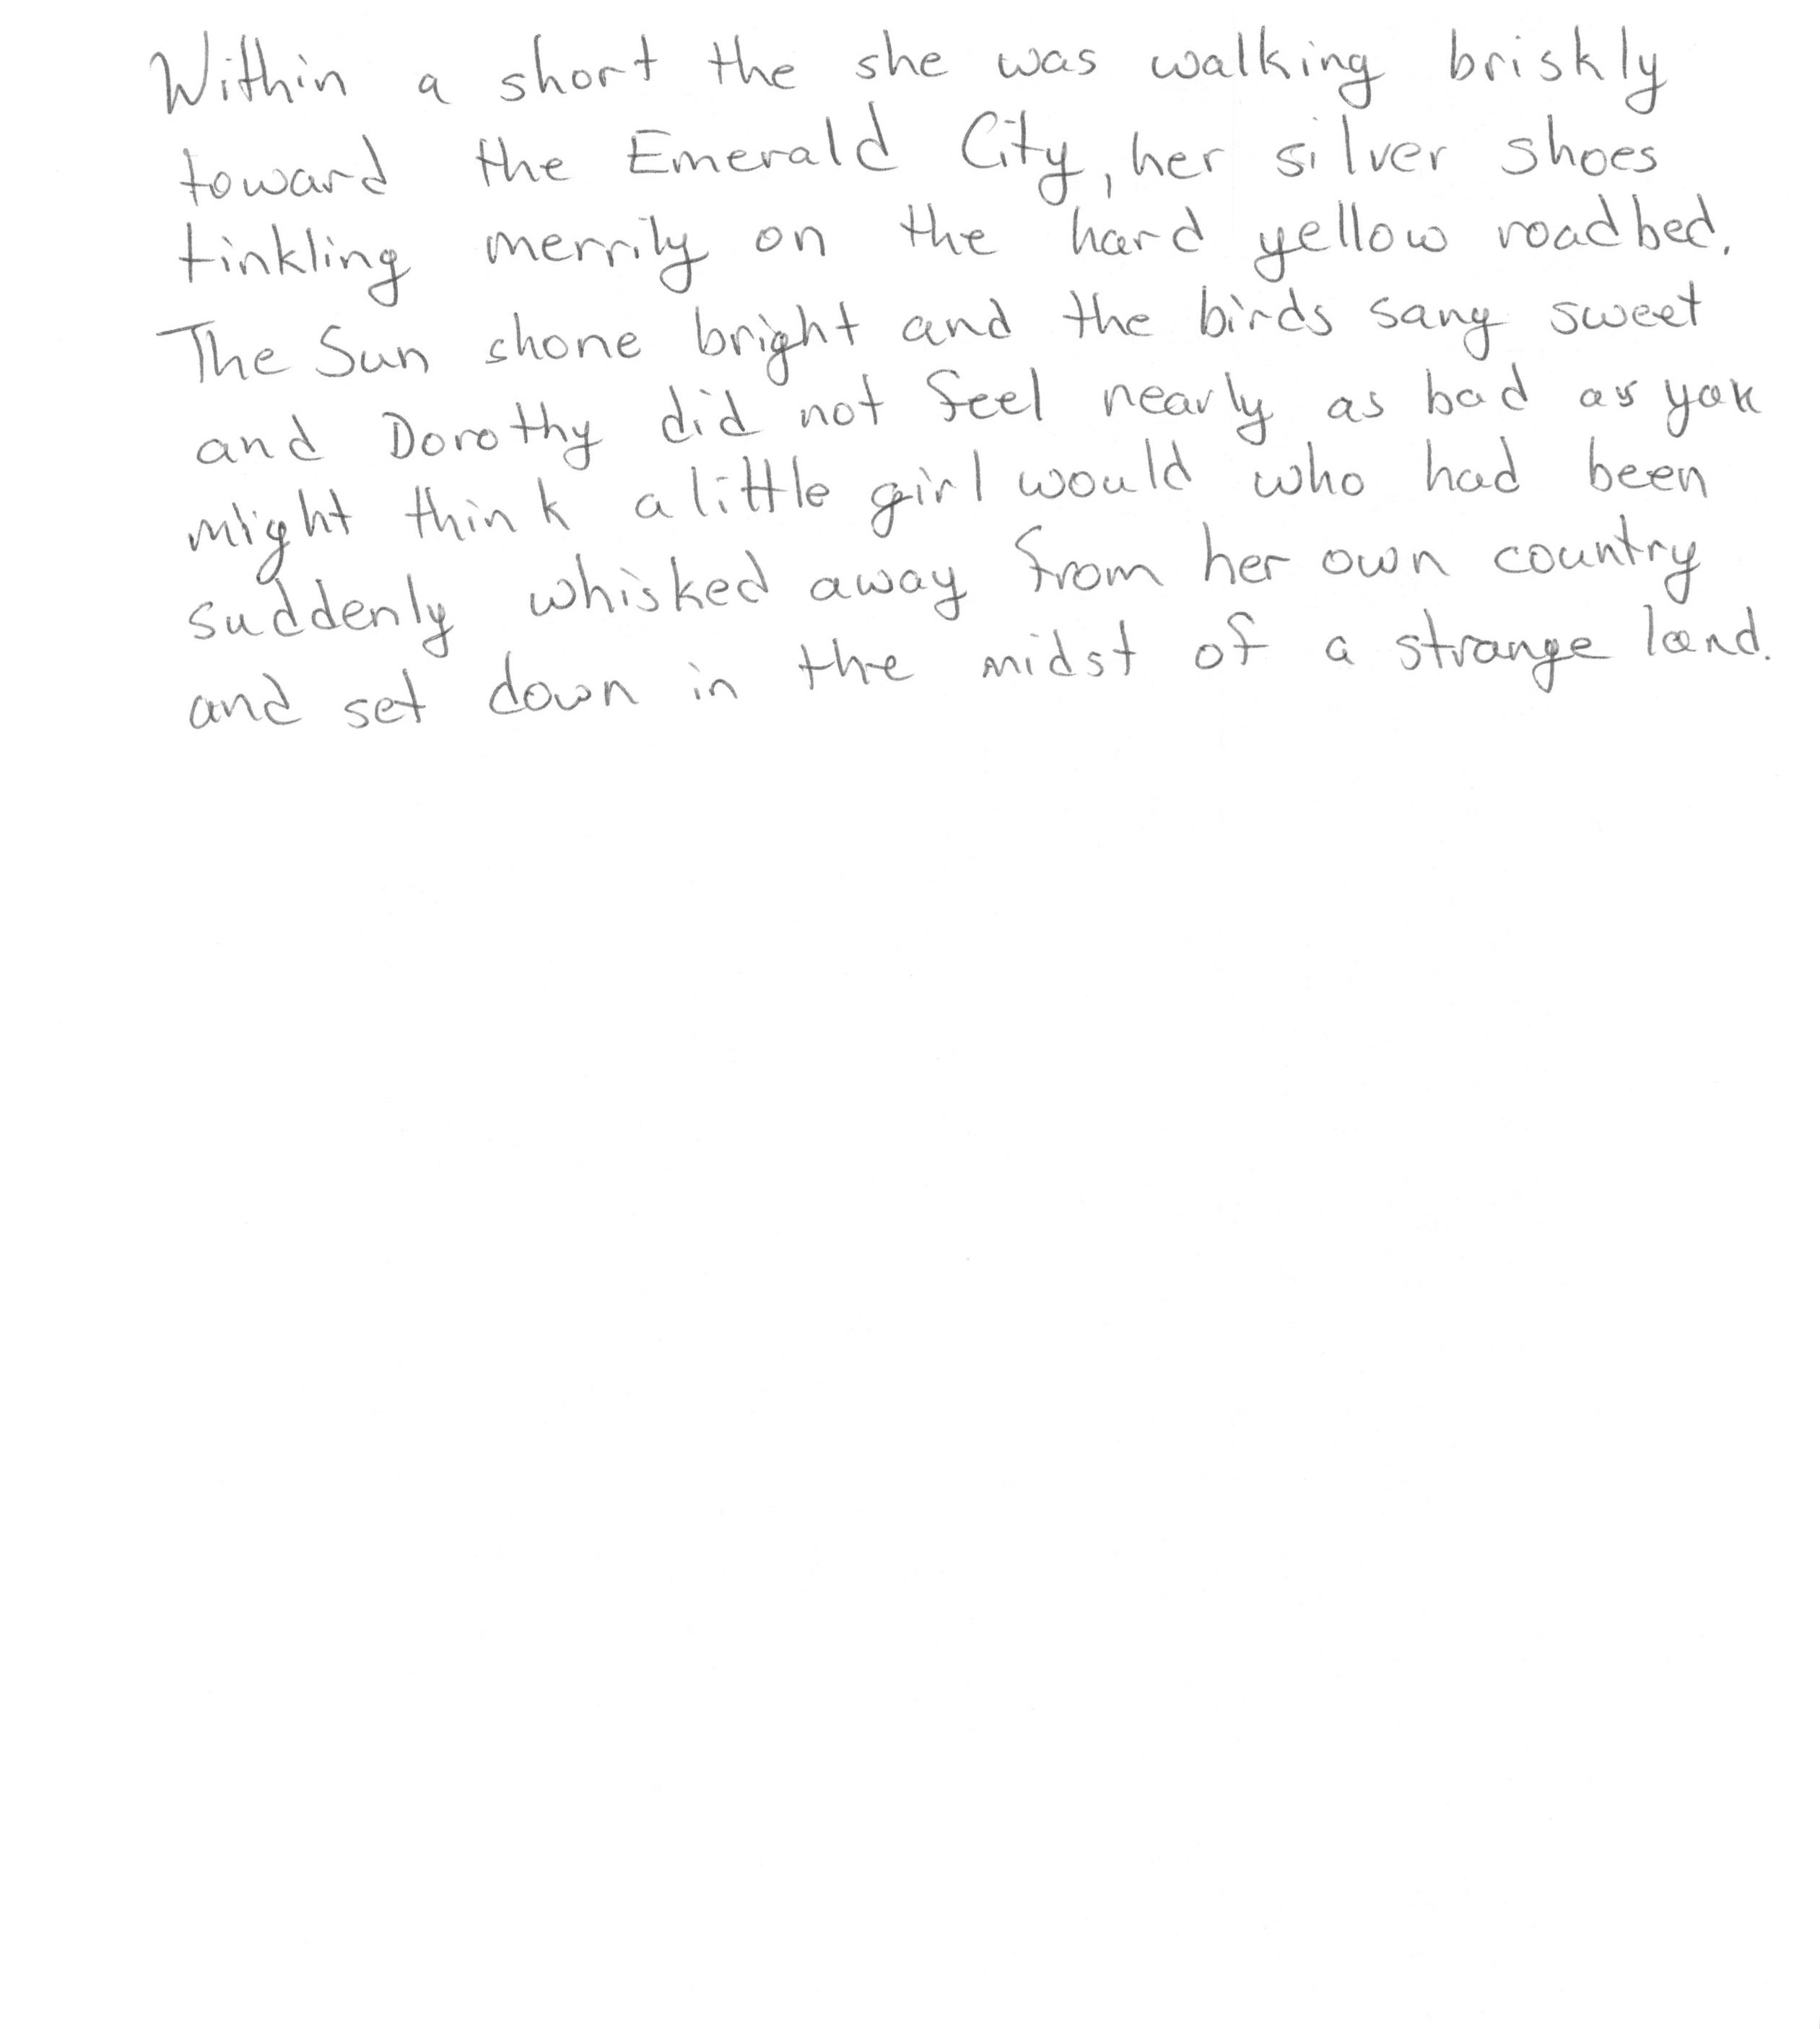 Within a short the she was walking briskly
toward the Emerald City, her silver shoes
tinkling merrily on the hard yellow roadbed.
The Sun shone bright and the birds sang sweet
and Dorothy did not feel nearly as bad as you
might think a little girl would who had been
suddenly whisked away from her own country
and set down in the midst of a strange land.